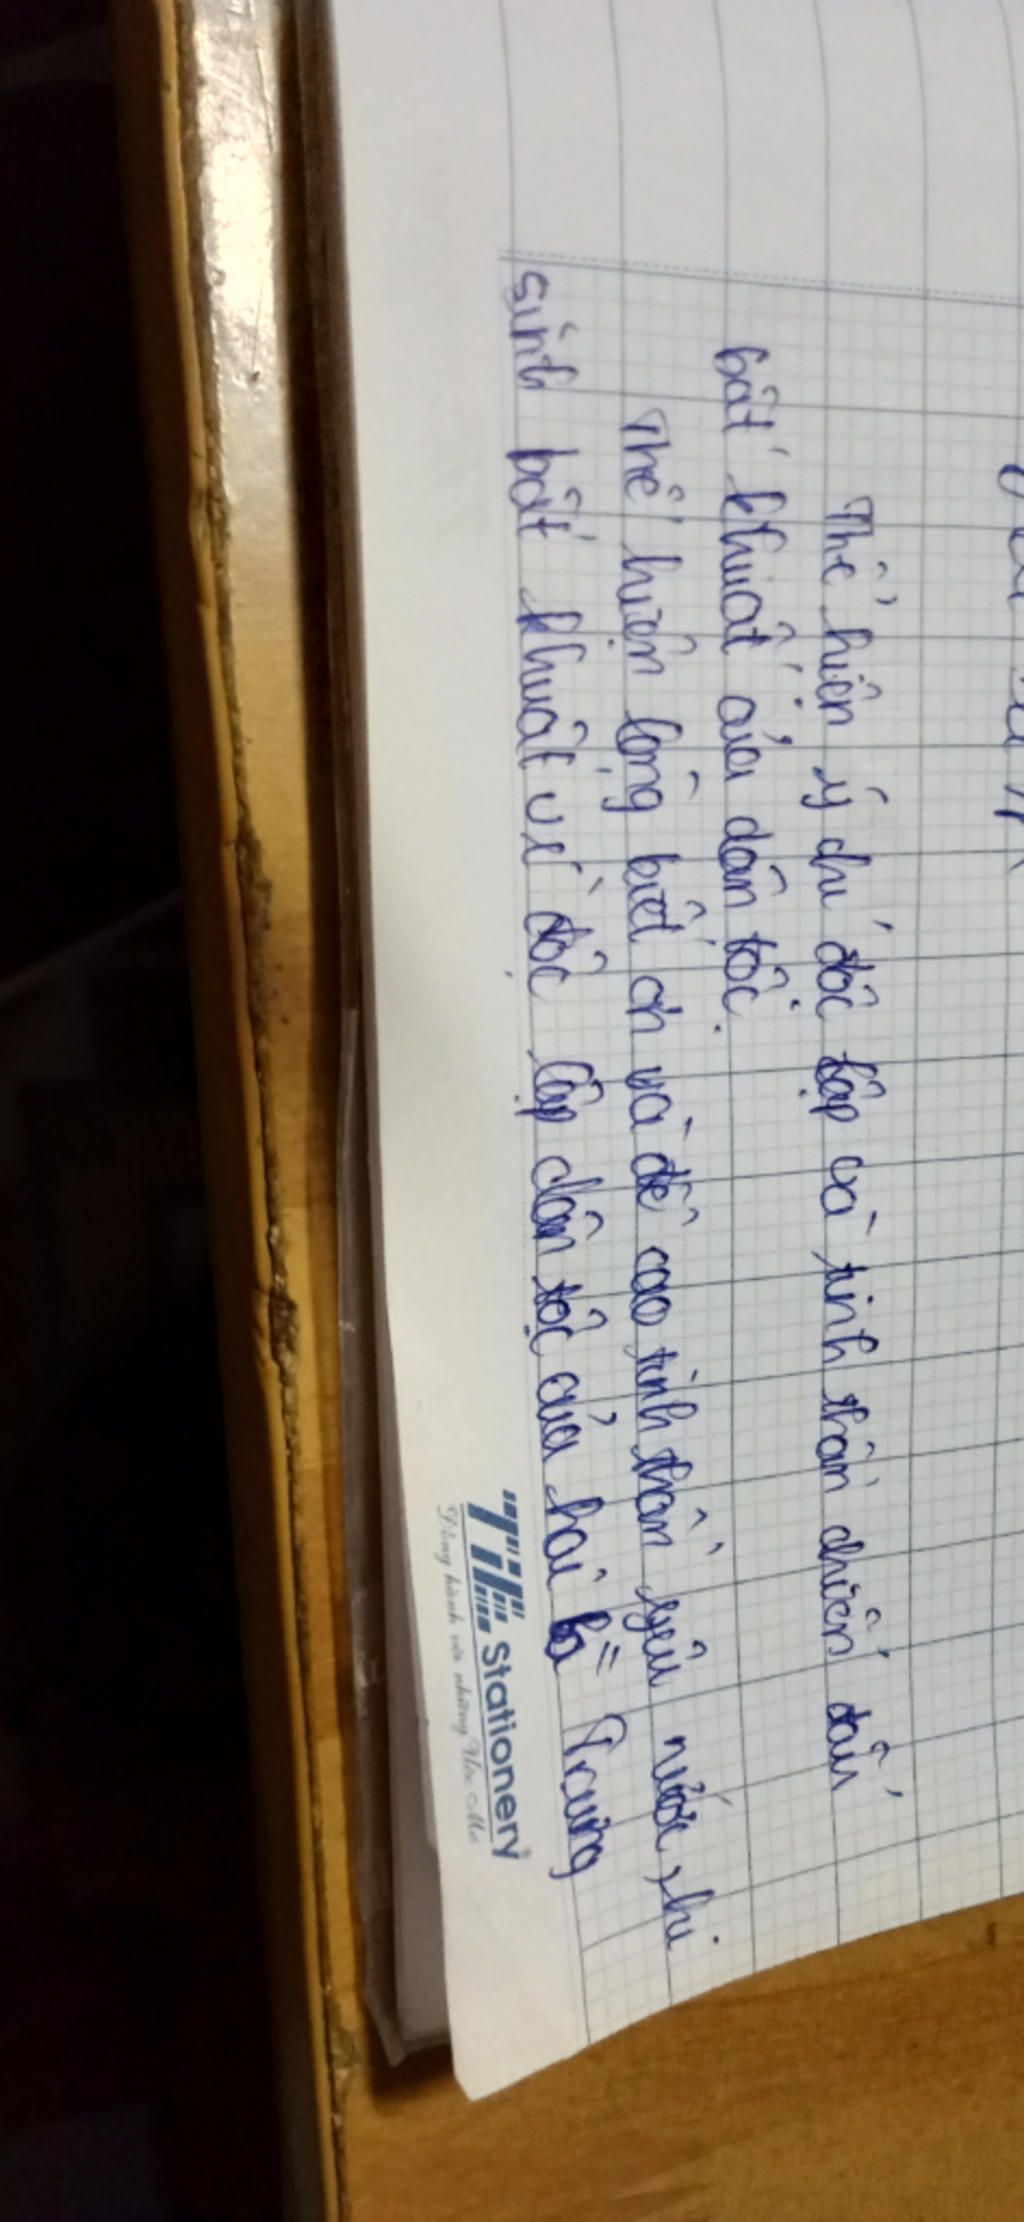 Thể hiện ý chí độc lập và tinh thần chiến đấu
bất khuất của dân tộc.
Thể hiện lòng biết ơn và đề cao tinh thần yêu nước, hi
sinh bất khuất vì độc lập dân tộc của hai bà Trưng
Tip Stationery
Đồng hành với những Ước Mơ